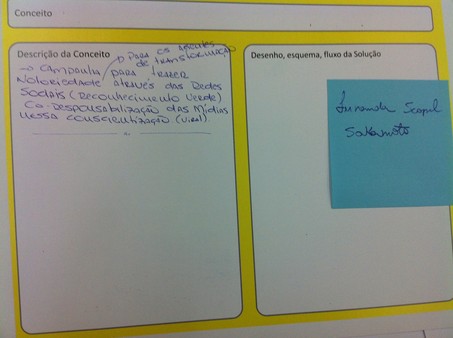 Conceito
Descrição da Conceito
→ Para os agentes
de transformação
→ Campanha para trazer
Notoriedade através das Redes
Sociais (Reconhecimento Verde)
Co-Responsabilização das Mídias
nessa conscientização (viral)
Desenho, esquema, fluxo da Solução
Sakamoto